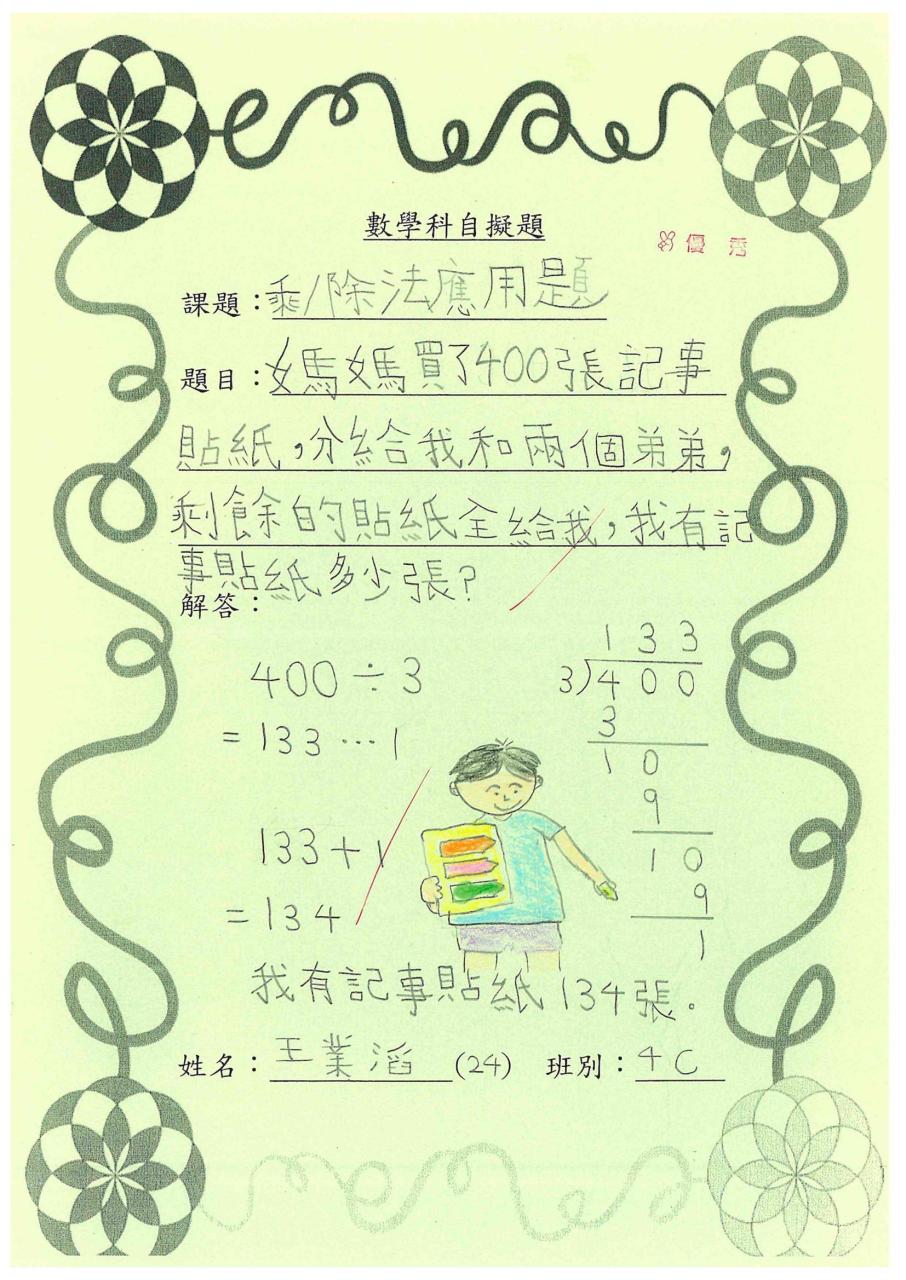 數學科自擬題
優 秀
課題：乘/除法應用題
題目：媽媽買了400張記事
貼紙，分給我和兩個弟弟，
剩餘的貼紙全給我，我有記
事貼紙多少張?
解答：
400÷3
=133…1
133+1
=134
133
3)400
3
10
9
10
9
1
我有記事貼紙134張。
姓名：王業滔(24) 班別：4C